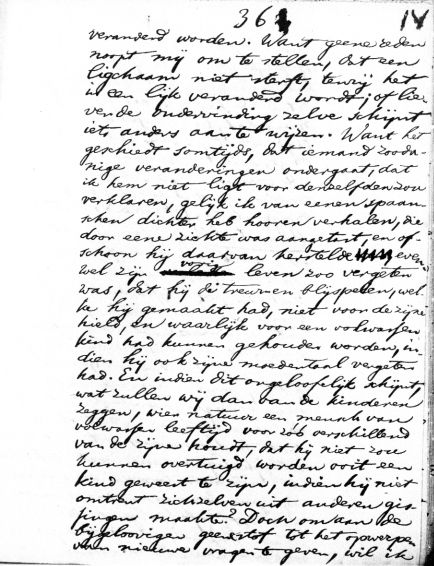 361 IV
veranderd worden. Want geene reden
noopt mij om te stellen, dat een
ligchaam niet sterft, tenzij het
in een lijk veranderd wordt; of lie-
ver de ondervinding zelve schijnt
iets anders aan te wijzen. Want het
geschiedt somtijds, dat iemand zooda-
nige veranderingen ondergaat, dat
ik hem niet ligt voor denzelfden zou
verklaren, gelijk ik van eenen spaan-
schen dichter heb hooren verhalen, die
door eene ziekte was aangetast, en of-
schoon hij daarvan herstelde even-
wel zijn vorig leven zoo vergeten
was, dat hij de treur en blijspelen, wel-
ke hij gemaakt had, niet voor de zijne
hield, en waarlijk voor een volwassen
kind had kunnen gehouden worden, in-
dien hij ook zijne moedertaal vergeten
had. En indien dit ongeloofelijk schijnt,
wat zullen wij dan van de kinderen
zeggen, wier natuur een mensch van
volwassen leeftijd voor zóó verschillend
van de zijne houdt, dat hij niet zou
kunnen overtuigd worden ooit een
kind geweest te zijn, indien hij niet
omtrent zichzelven uit anderen gis-
singen maakte? Doch om aan de
bijgeloovigen geen stof tot het opwerpen
van nieuwe vragen te geven, wil ik